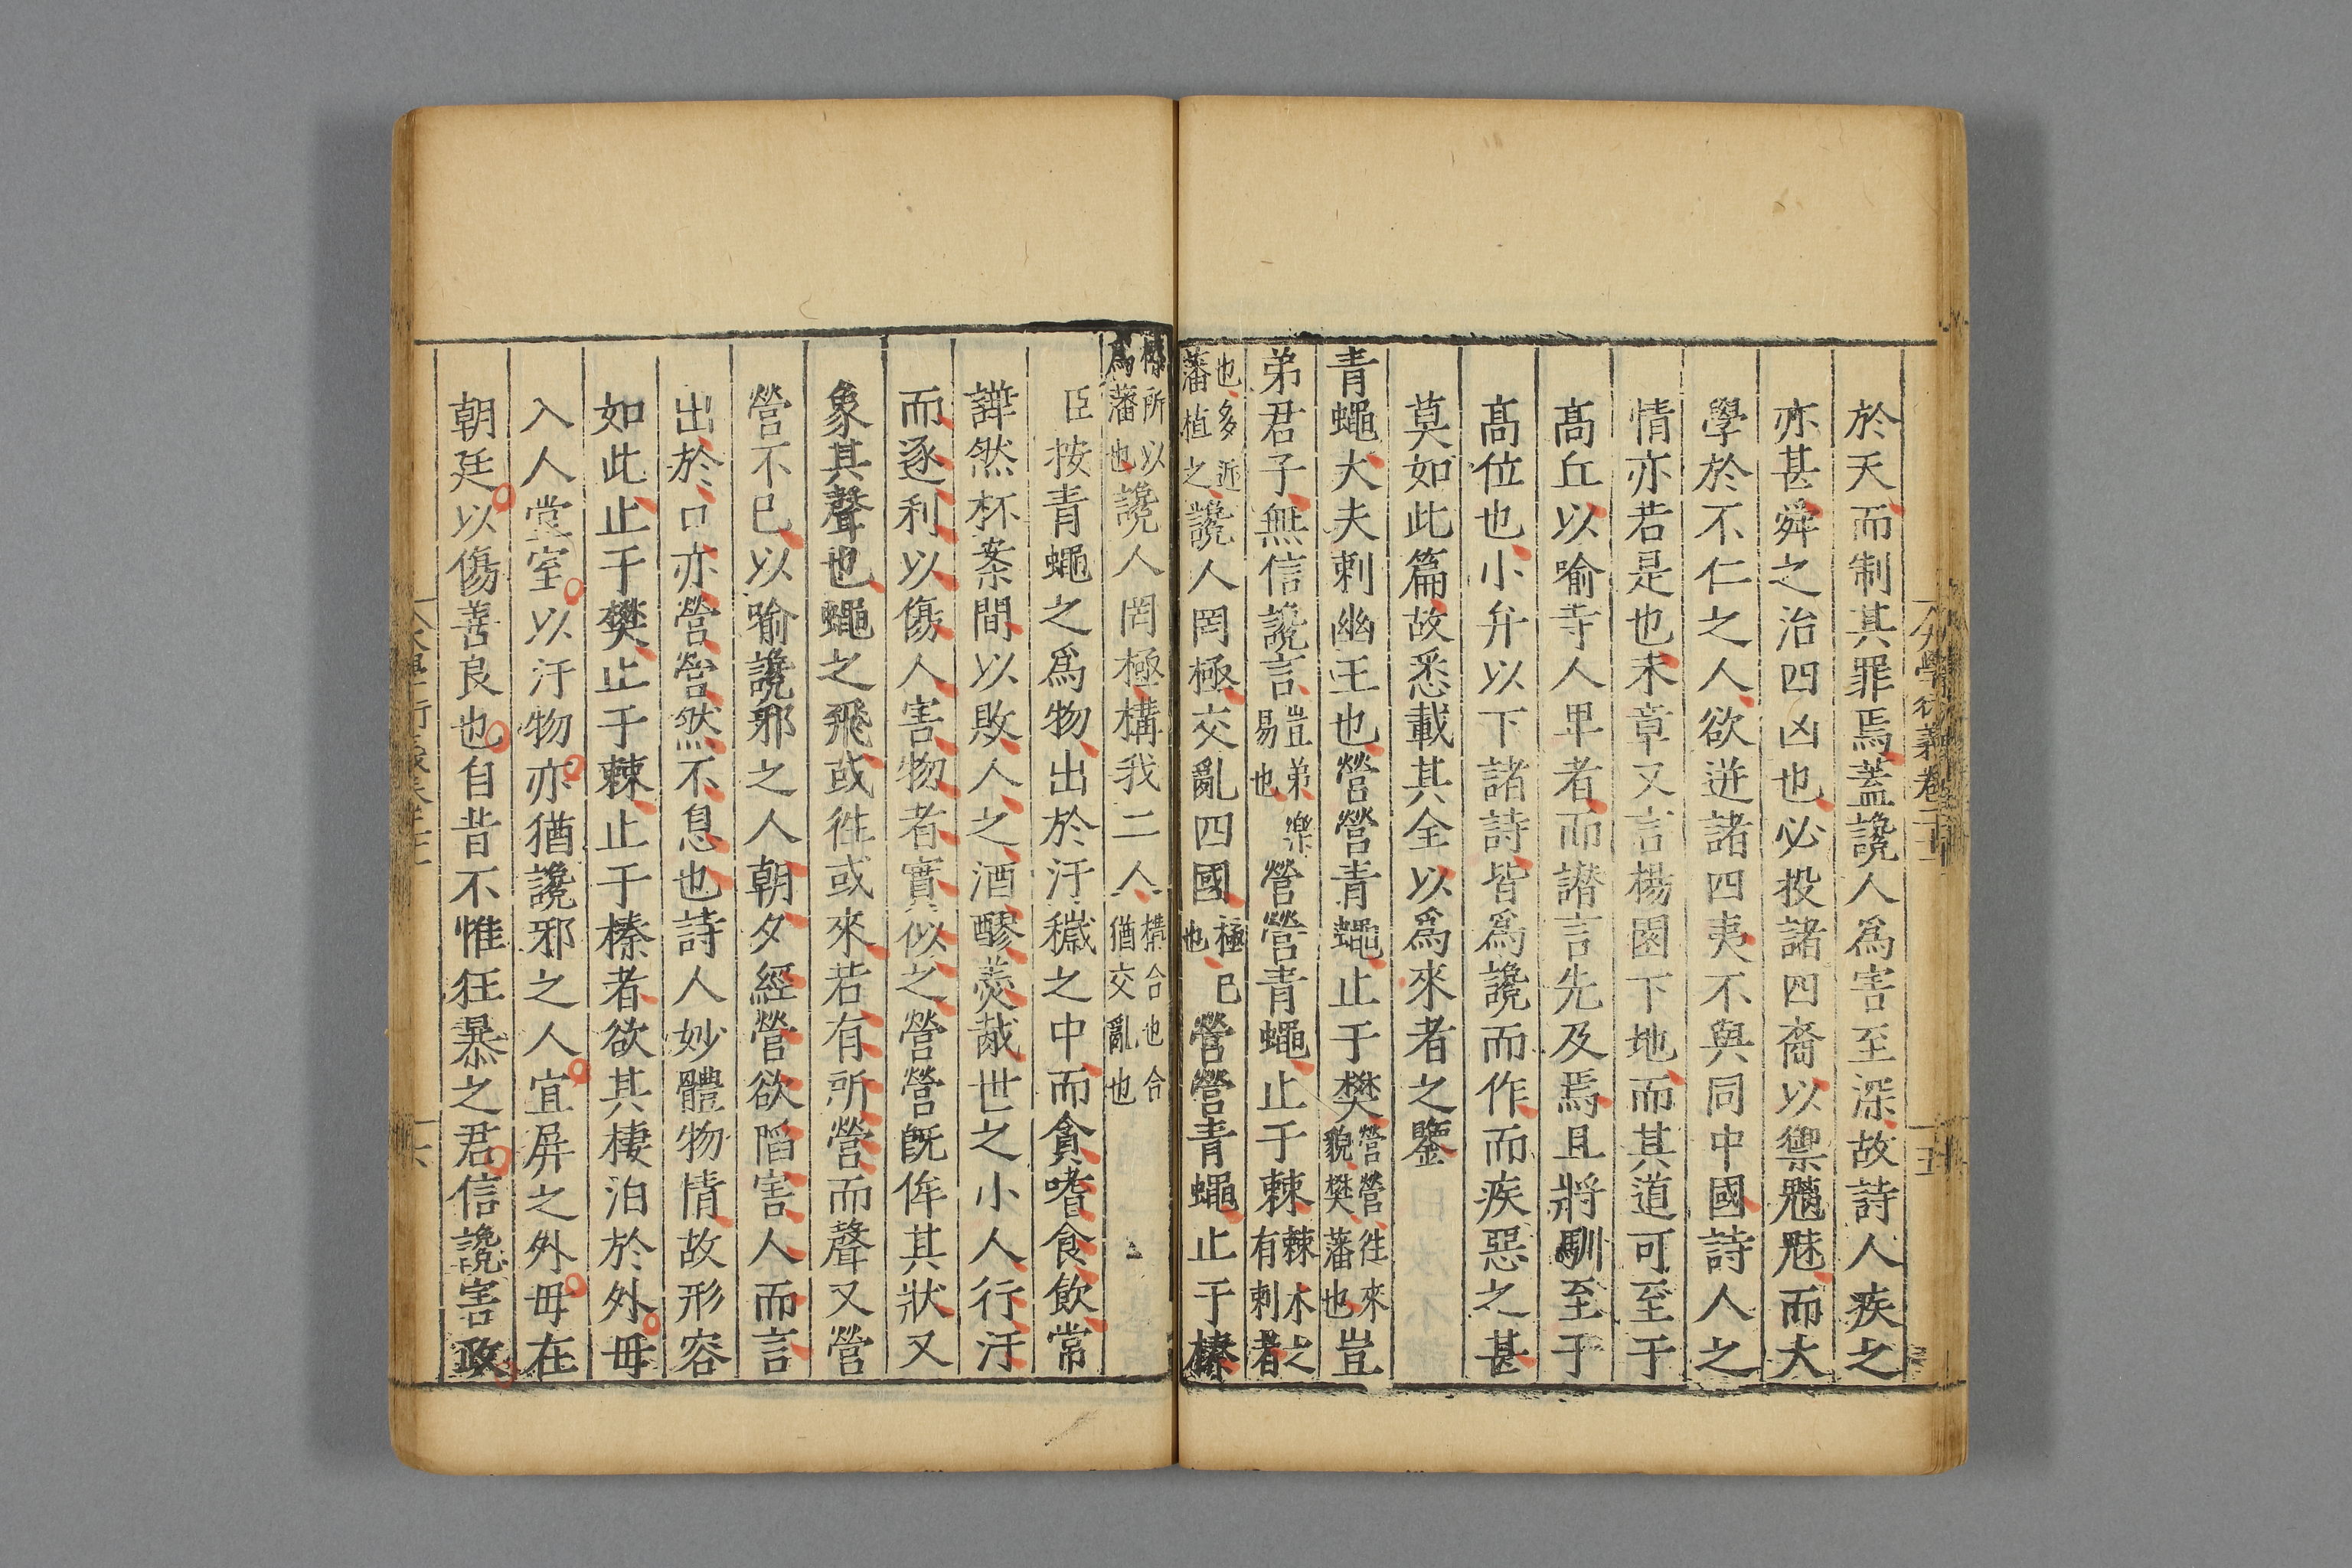 於天而制其罪焉蓋讒人爲害至深故詩人疾之
亦甚舜之治四凶也必投諸四裔以禦魑魅而大
學於不仁之人欲迸諸四夷不與同中國詩人之
情亦若是也末章又言楊園下地而其道可至于
髙丘以喻寺人卑者而譖言先及焉且將馴至于
髙位也小弁以下諸詩皆爲讒而作而疾惡之甚
莫如此篇故悉載其全以爲來者之鑒
青蠅大夫刺幽王也營營青蠅止于樊營營往來貌樊藩也豈
弟君子無信讒言豈弟樂易也營營青蠅止于棘棘木之有刺者
也多近藩植之讒人罔極交亂四國極已也營營青蠅止于榛
榛所以爲藩也讒人罔極構我二人構合也合猶交亂也
臣按青蠅之爲物出於汙穢之中而貪嗜食飲常
譁然杯案間以敗人之酒醪羹胾世之小人行汙
而逐利以傷人害物者實似之營營旣侔其狀又
象其聲也蠅之飛或徃或來若有所營而聲又營
營不已以喻讒邪之人朝夕經營欲䧟害人而言
出於口亦營營然不息也詩人妙體物情故形容
如此止于樊止于棘止于榛者欲其棲泊於外毋
入人堂室以汙物亦猶讒邪之人宜屏之外毋在
朝廷以傷善良也自昔不惟狂暴之君信讒害政